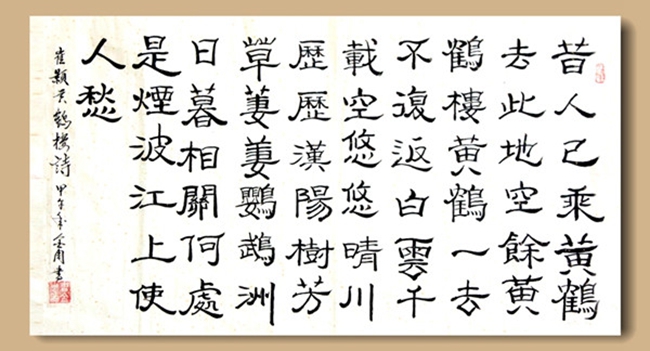 昔人已乘黃鶴
去此地空餘黃
鶴樓黃鶴一去
不復返白雲千
載空悠悠晴川
歷歷漢陽樹芳
草萋萋鸚鵡洲
日暮相關何處
是煙波江上使
人愁
崔顥黃鶴樓詩 甲午年 書